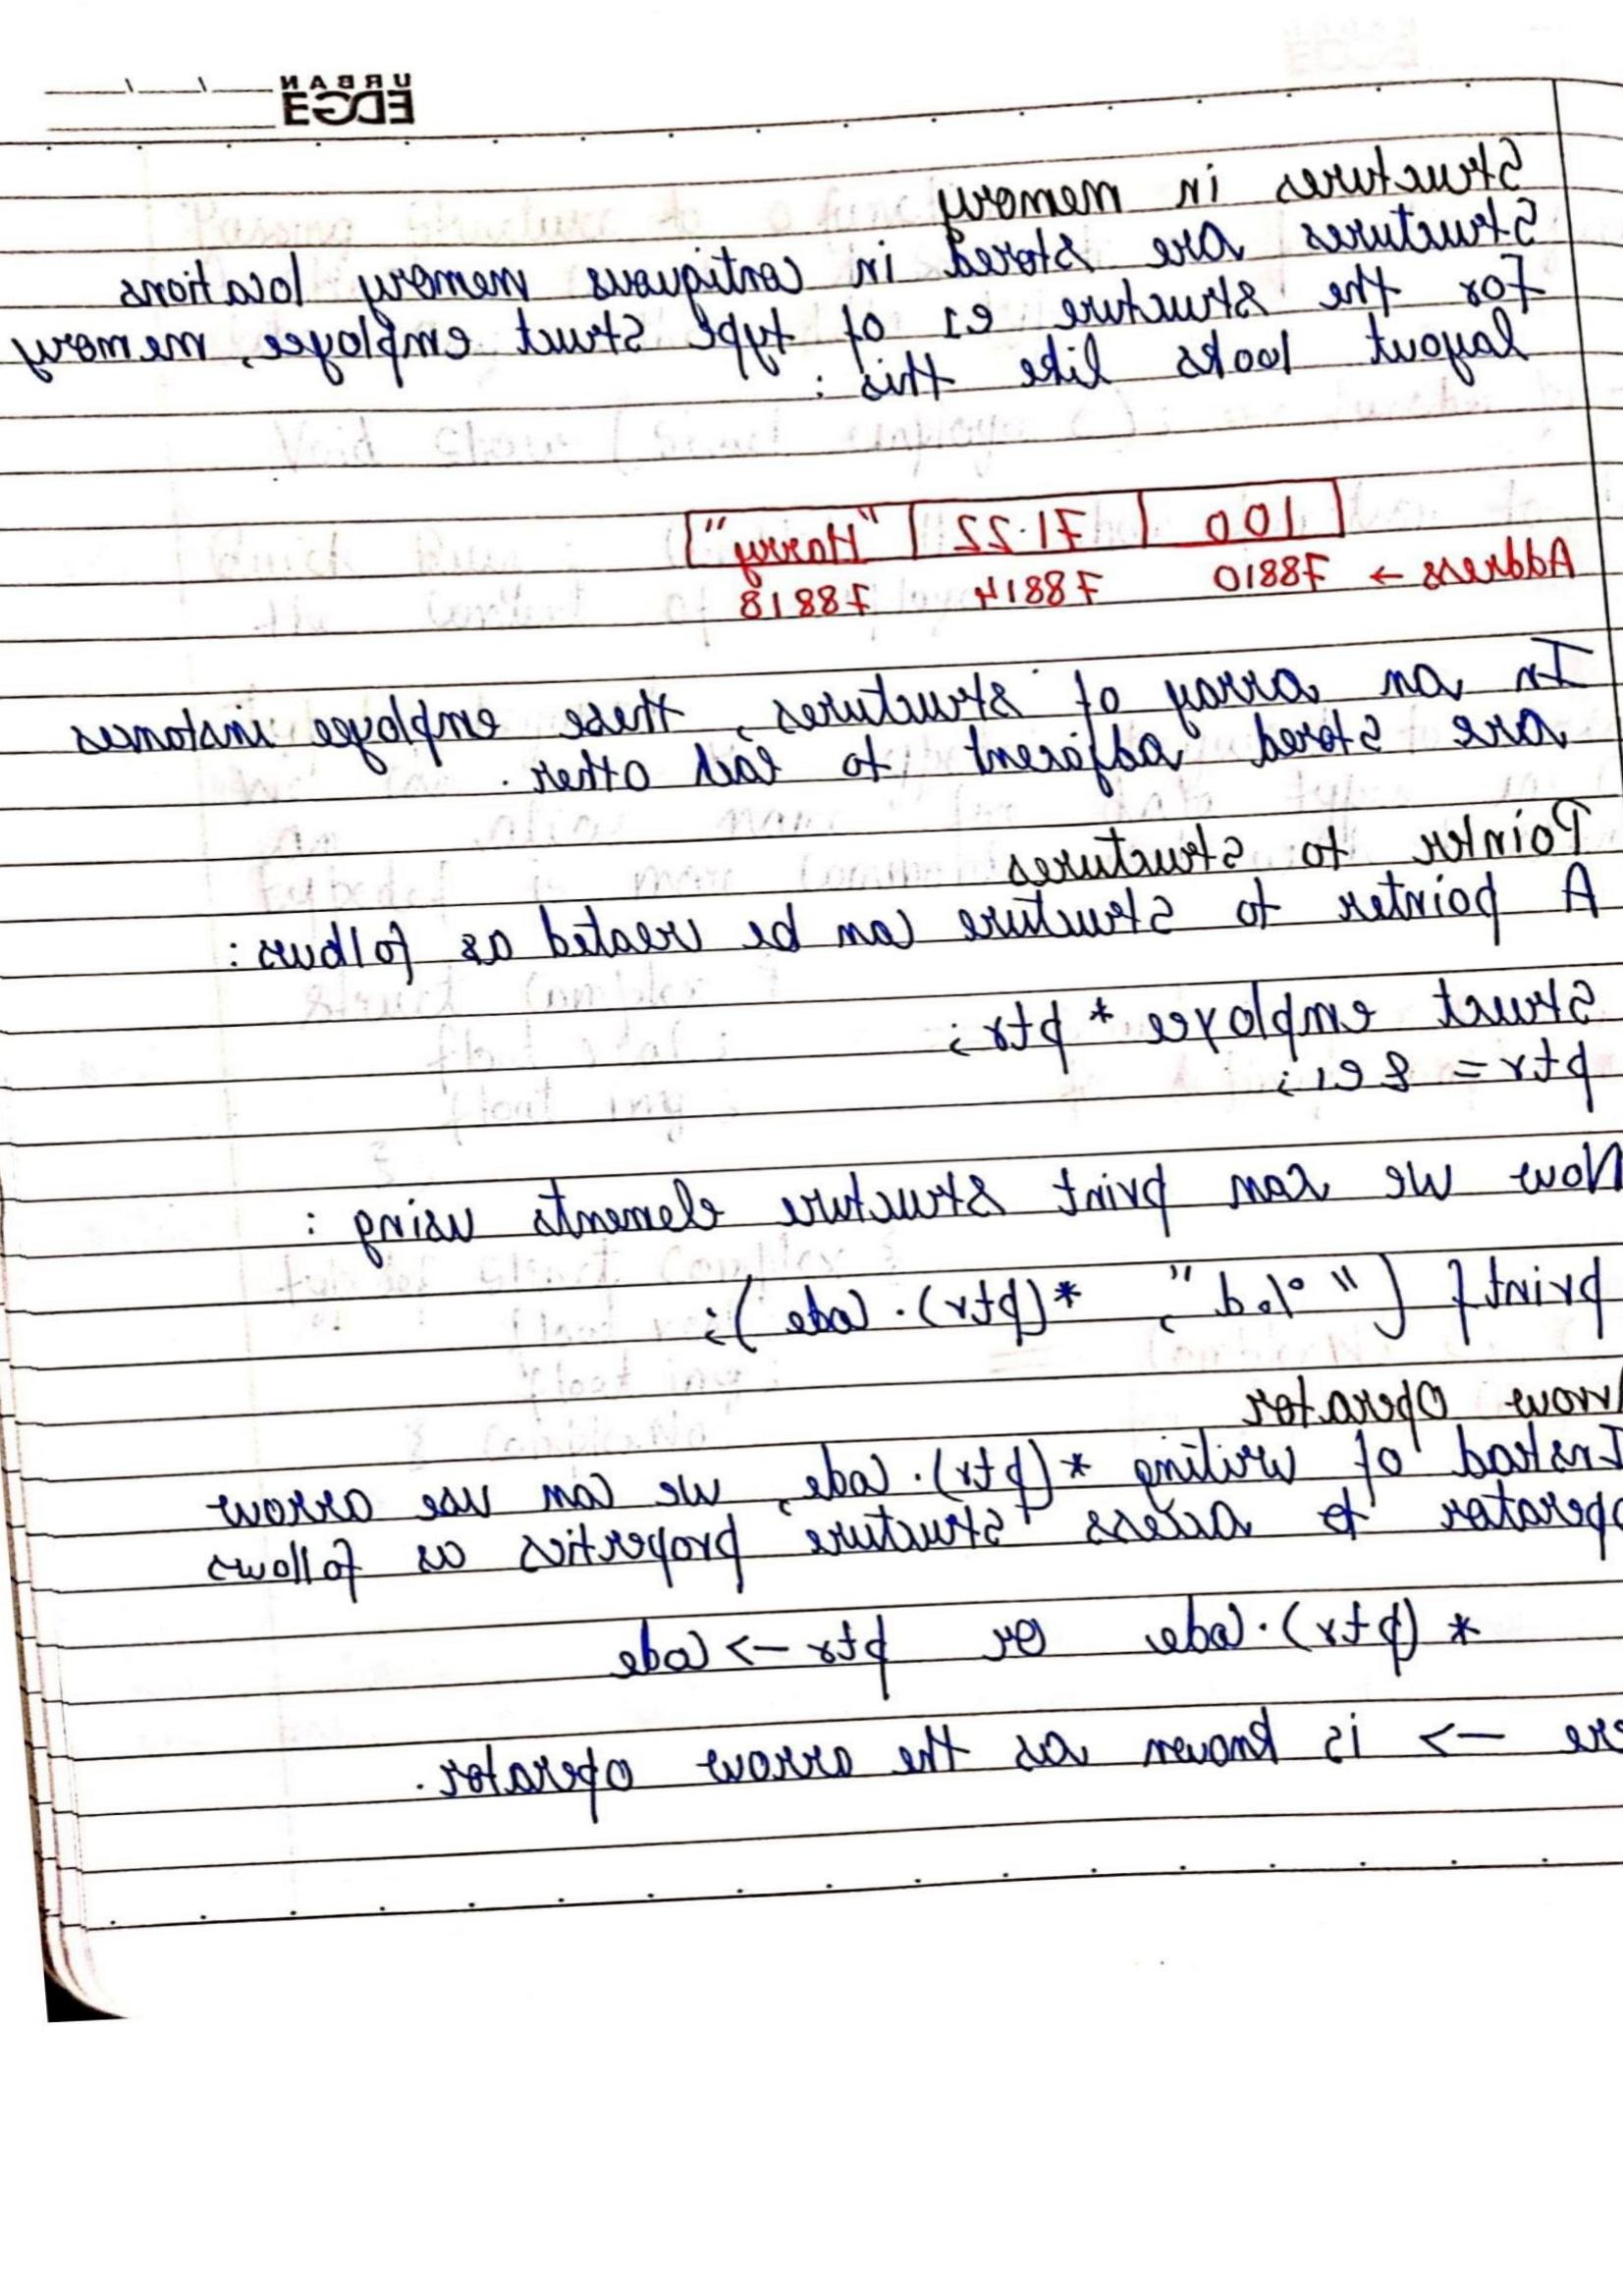 URBAN
EDGE
Structures in memory
Structures are stored in contiguous memory locations
for the structure e1 of type struct employee, memory
layout looks like this :
100 | 71.22 | "Harry"
Address → 78810 78814 78818
In an array of structures, these employee instances
are stored adjacent to each other.
Pointer to structures
A pointer to structure can be created as follows :
Struct employee * ptr;
ptr = & e1;
Now we can print structure elements using :
printf ("%d", *(ptr).code );
rrow operator
Instead of writing *(ptr).code, we can use arrow
operator to access structure properties as follows
* (ptr).code or ptr -> code
ere -> is known as the arrow operator.